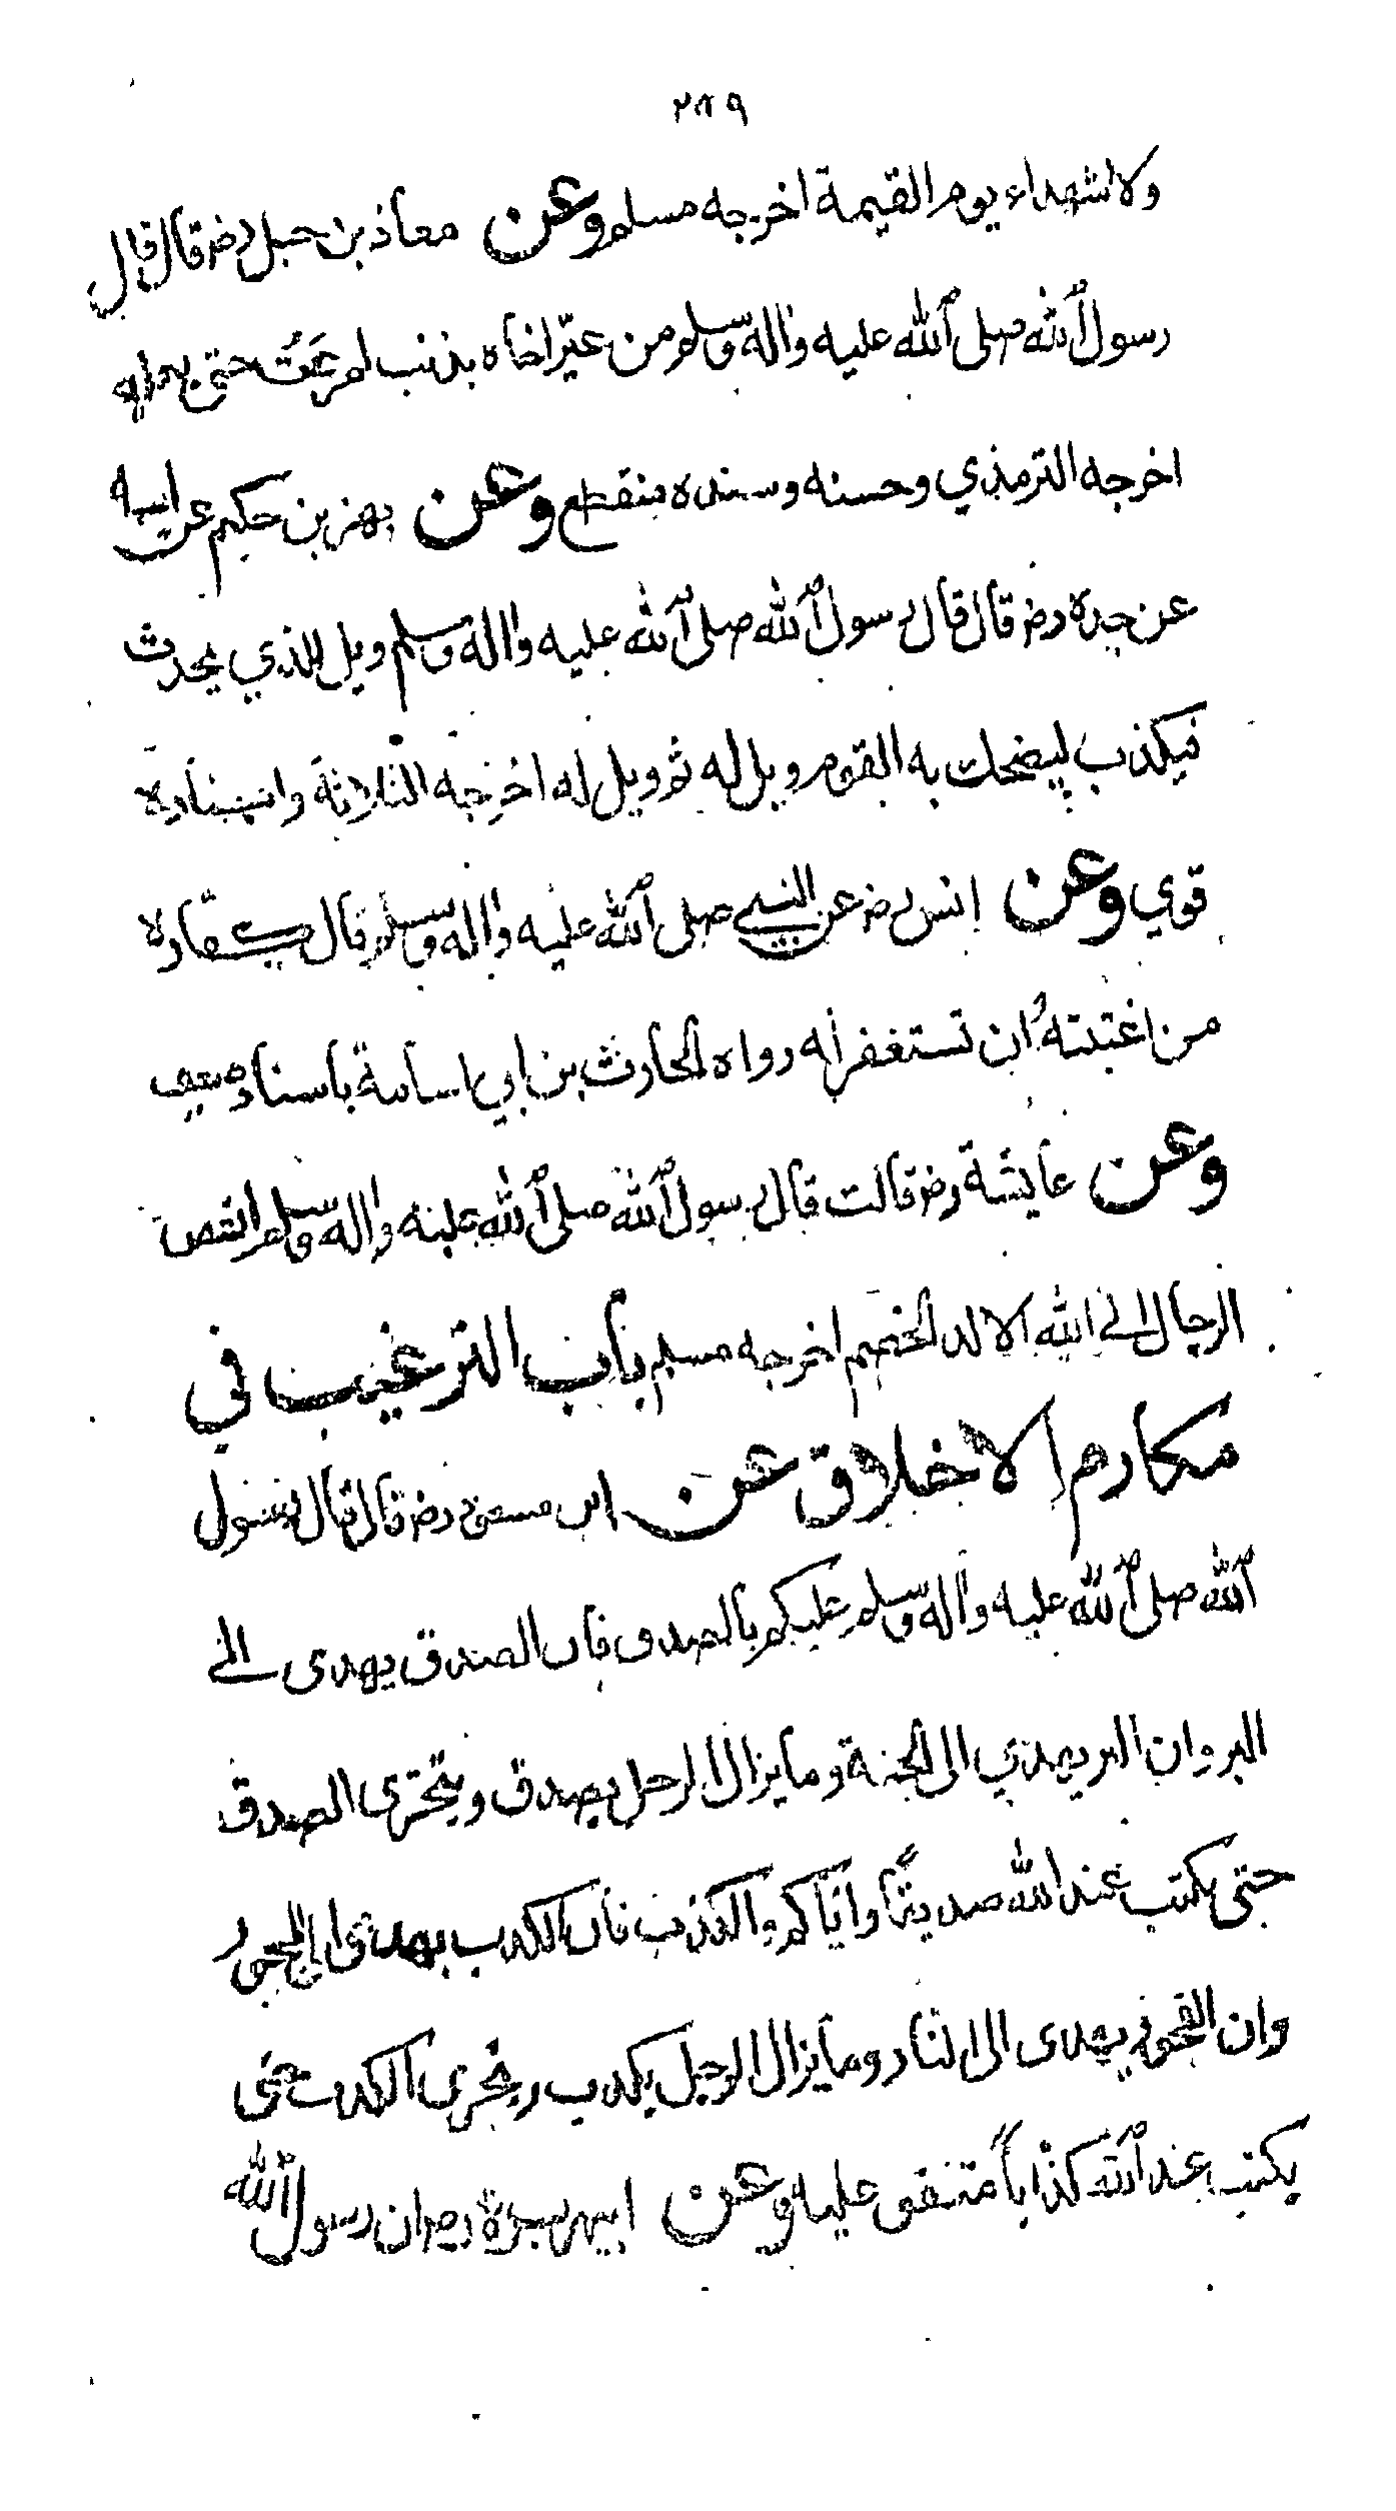 ٢٨٩
ولا شهداء يوم القيمة اخرجه مسلم وعن معاذ بن جبل رضه قال قال
رسول الله صلى الله عليه واله وسلم من عيّر اخاه بذنب لم يَمُت حتى يعمله
اخرجه الترمذي وحسنه وسنده منقطع وعن بهز بن حكيم عن ابيه
عن جده رضه قال قال رسول الله صلى الله عليه واله وسلم ويل للذي يحدث
فيكذب ليضحك به القوم ويل له ثم ويل له اخرجه الثلاثة واسناده
قوي وعن انس رضه عن النبي صلى الله عليه واله وسلم قال كفارة
من اغتبتهُ ان تستغفر له رواه الحارث بن ابي اسامة باسناد ضعيف
وعن عايشة رضه قالت قال رسول الله صلى الله عليه واله وسلم ابغض
الرجال الى الله الالد الخصم اخرجه مسلم باب الترغيب في
مكارم الاخلاق عن ابن مسعود رضه قال قال رسول
الله صلى الله عليه واله وسلم عليكم بالصدق فان الصدق يهدى الى
البر وان البر يهدي الى الجنة وما يزال الرجل يصدق ويتحرى الصدق
حتى يكتب عند الله صديقًا واياكم والكذب فان الكذب يهدى الى الفجور
وان الفجور يهدى الى النار وما يزال الرجل يكذب ويتحرى الكذب حتى
يكتب عند الله كذابًا متفق عليه وعن ابي هريرة رضه ان رسول الله